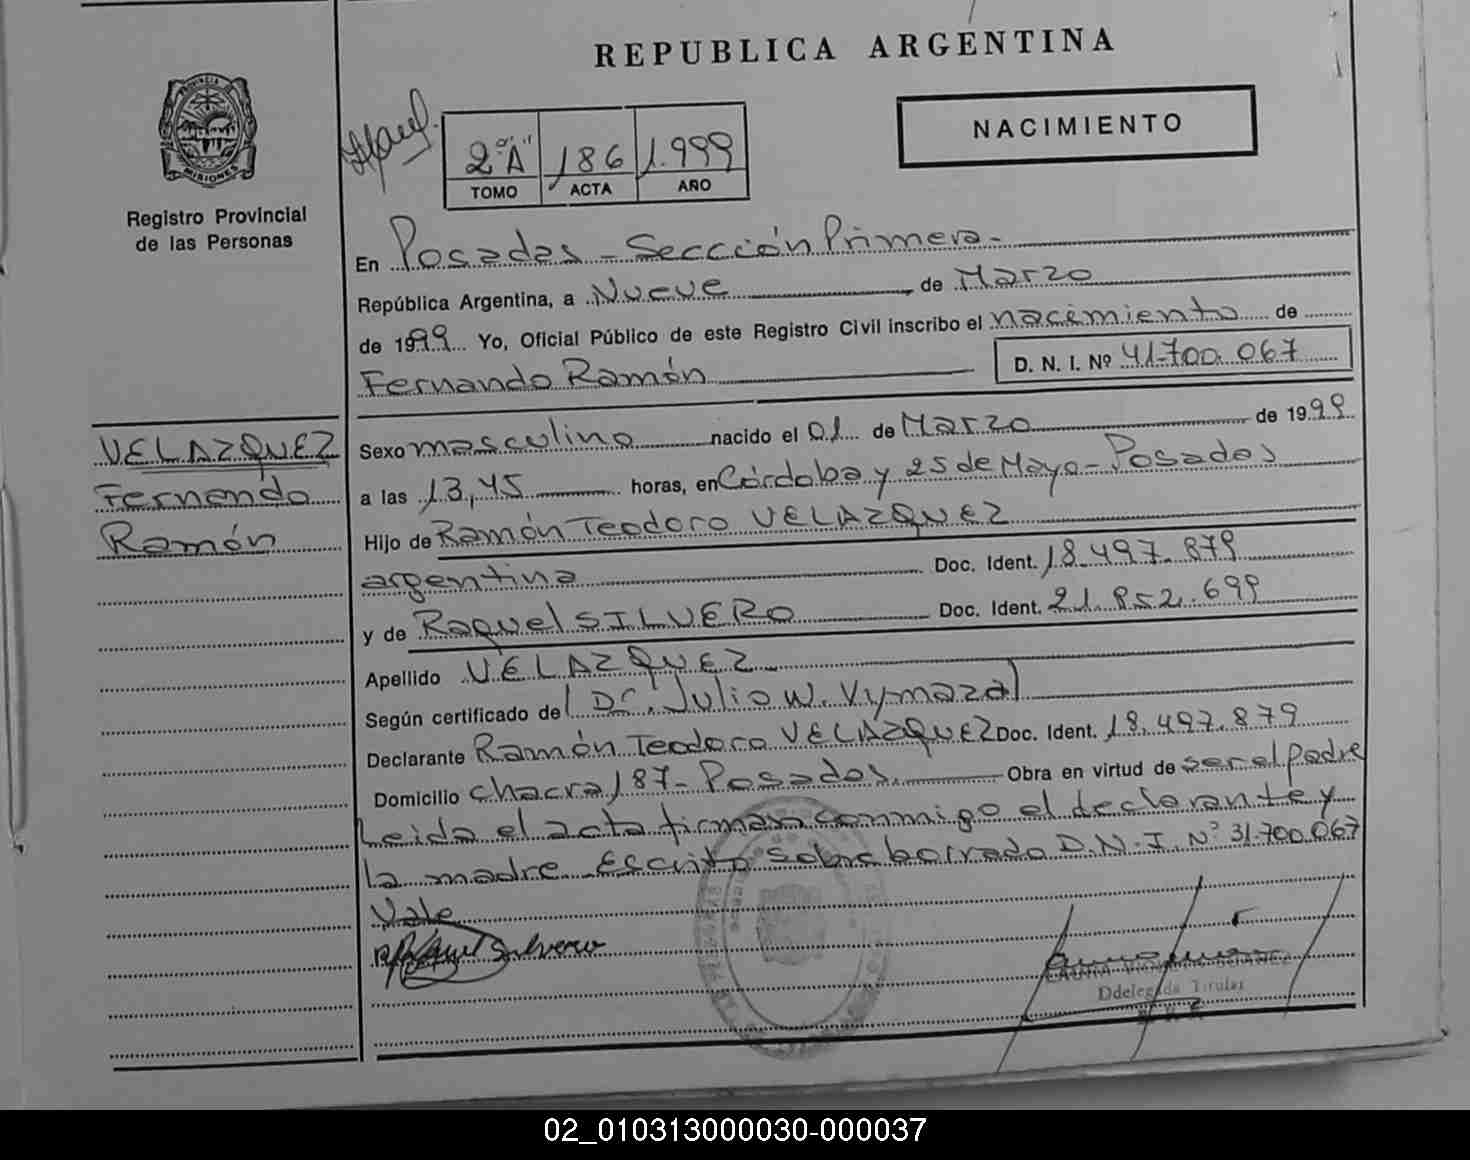 REPUBLICA ARGENTINA
NACIMIENTO
PROVINCIA DE
MISIONES
Registro Provincial
de las Personas
2º "A" 186 1.999
TOMO ACTA AÑO
En Posadas - Sección Primera -
República Argentina, a Nueve de Marzo
de 1999 Yo, Oficial Público de este Registro Civil inscribo el nacimiento de
Fernando Ramón D. N. I. Nº 41.700.067
VELAZQUEZ
Fernando
Ramón
Sexo masculino nacido el 01 de Marzo de 1999
a las 13,45 horas, en Córdoba y 25 de Mayo - Posadas
Hijo de Ramón Teodoro VELAZQUEZ
argentina Doc. Ident. 18.497.879
y de Raquel SILVERO Doc. Ident. 21.852.699
Apellido VELAZQUEZ
Según certificado del Dr. Julio W. Vymazal
Declarante Ramón Teodoro VELAZQUEZ Doc. Ident. 18.497.879
Domicilio chacra 187 - Posadas. Obra en virtud de ser el padre
Leida el acta firman conmigo el declarante y
la madre. Escrito sobre borrado D.N.I. Nº 31.700.067
Vale
Raquel Silvero
Ddelegada Titular
02_010313000030-000037